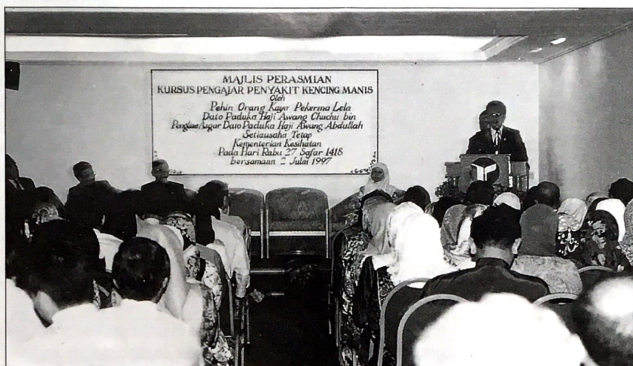 MAJLIS PERASMIAN
KURSUS PENGAJAR PENYAKIT KENCING MANIS
Oleh
Pehin Orang Kaya Pekerma Lela
Dato Paduka Haji Awang Chuchu bin
Penglima Asgar Dato Paduka Haji Awang Abdullah
Setiausaha Tetap
Kementerian Kesihatan
Pada Hari Rabu 27 Safar 1418
bersamaan 2 Julai 1997